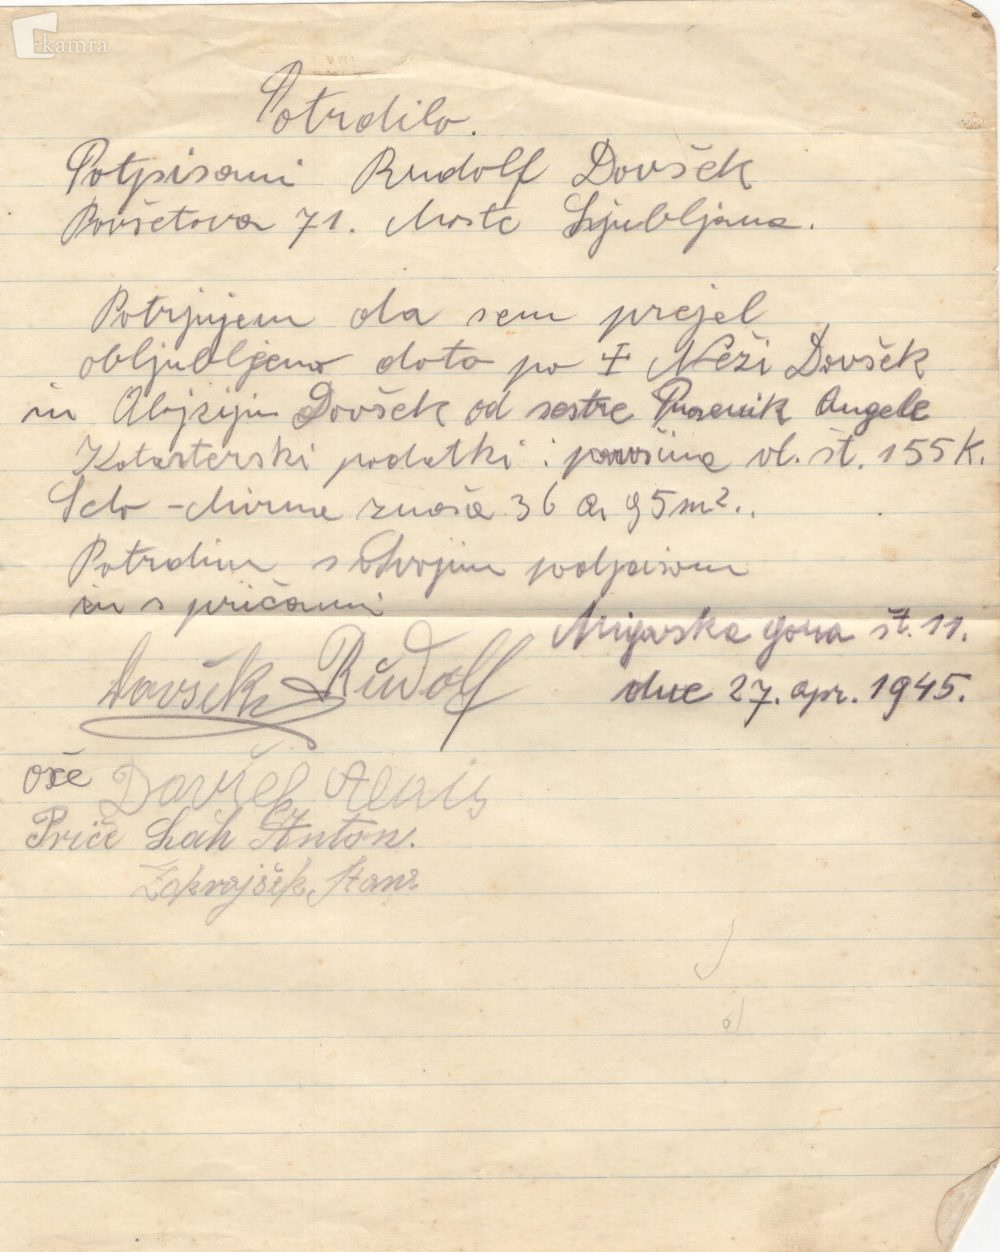 kamra
Potrdilo.
Potpisani Rudolf Dovšek
Povšetova 71. Moste Ljubljana.
Potrjujem da sem prejel
obljubljeno doto po ‡ Neži Dovšek
in Alojziju Dovšek od sestre Prosenik Angele
Katasterski podatki : površina vl. št. 155 K.
Selo - Mirna znaša 36 a 95 m².
Potrdim s svojim podpisom
in s pričami
Migarska gora št. 11.
Dovšek Rudolf
dne 27. apr. 1945.
oče Dovšek Alojs
Priče Lah Anton.
Zakrajšek Stane